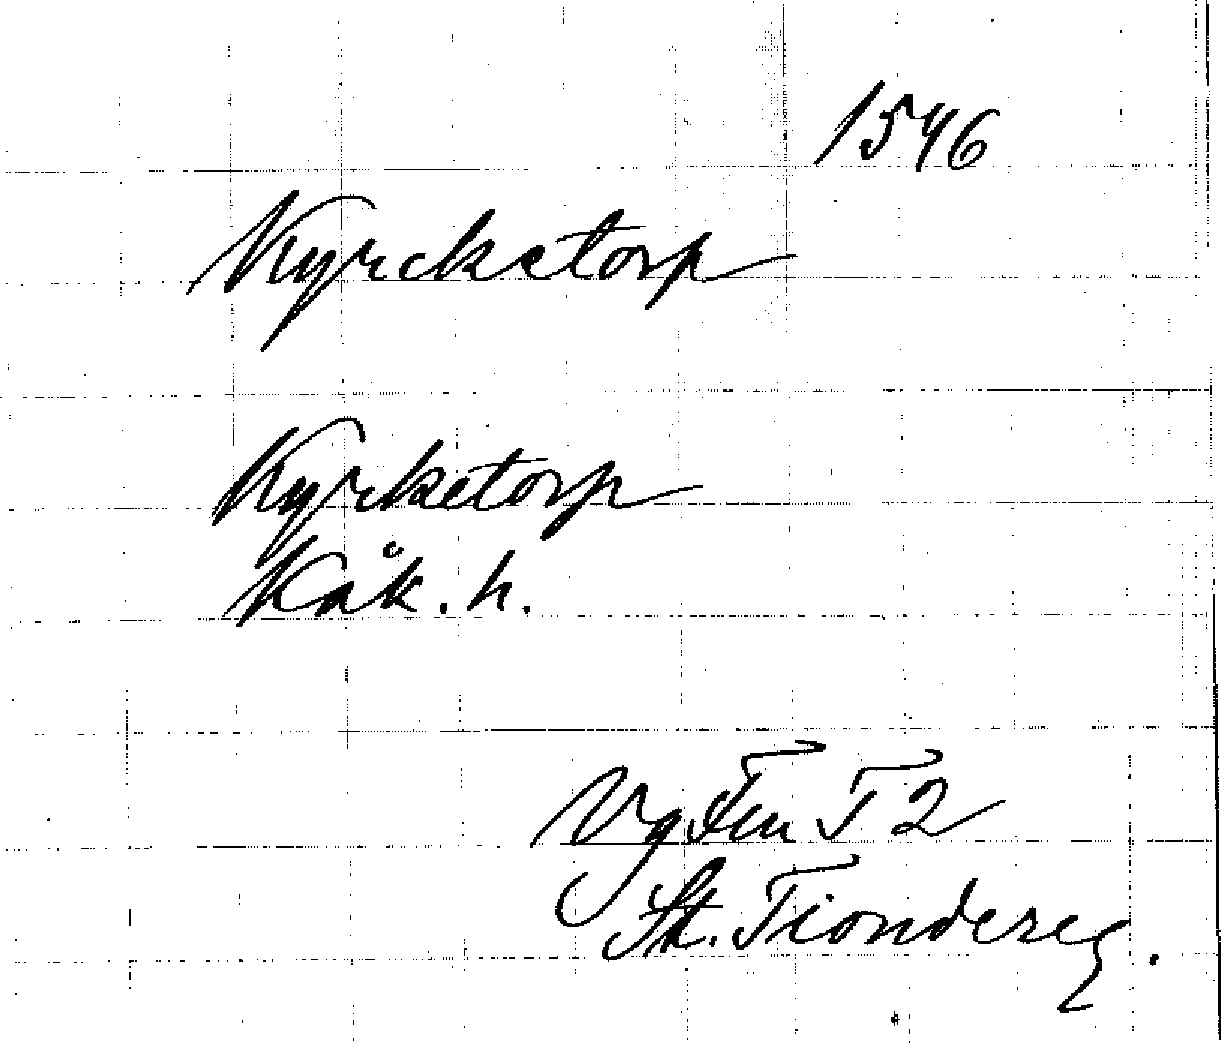 1546
Kyrcketorp
Kyrketorp
Kåk. h.
Vg Fru T 2
St. Tiondereg.